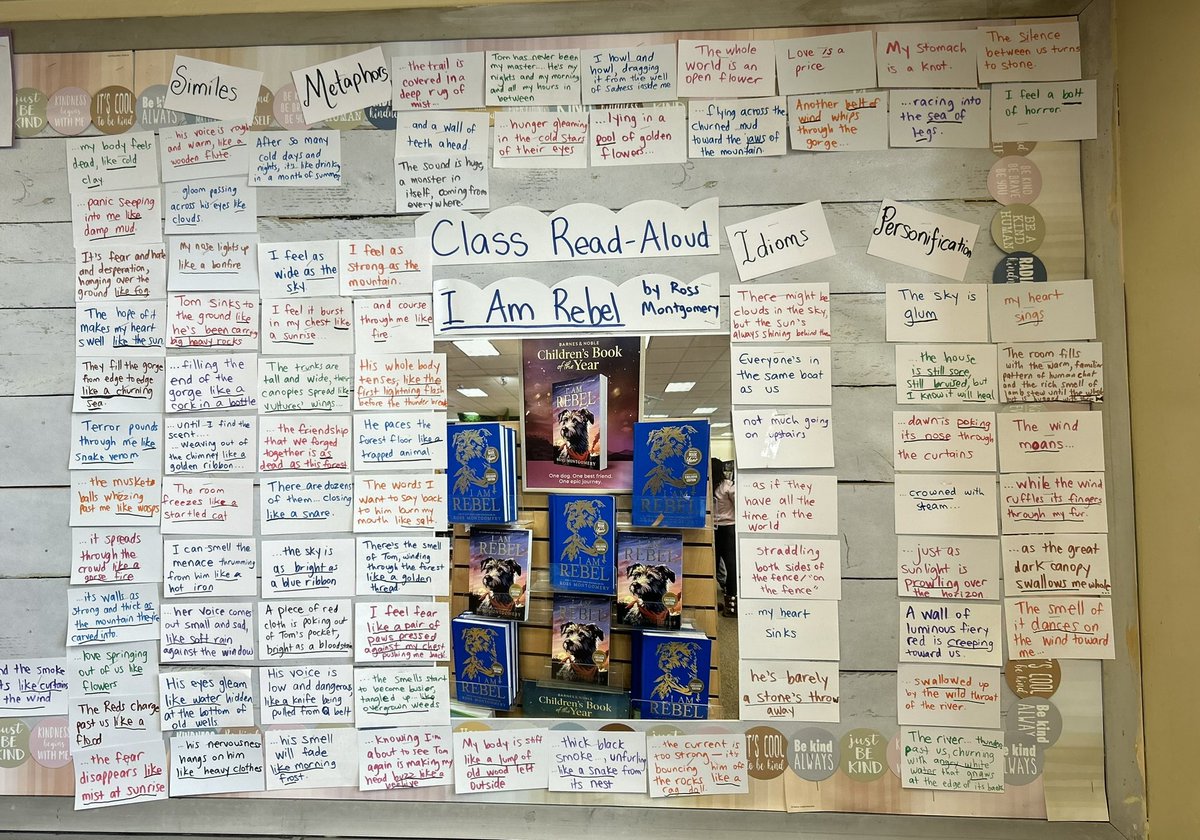 Similes
Metaphors
...the trail is
covered in a
deep rug of
mist...
Tom has never been
my master... He's my
nights and my morning
and all my hours in
between
I howl and
howl, dragging
it from the well
of sadness inside me
The whole
world is an
open flower
Love is a
price
My stomach
is a knot.
The Silence
between us turns
to stone.
...and a wall of
teeth ahead
...hunger gleaming
in the cold stars
of their eyes
...lying in a
pool of golden
flowers...
...flying across the
churned mud
toward the jaws of
the mountain.
Another belt of
wind whips
through the
gorge.
...racing into
the sea of
legs.
I feel a bolt
of horror
The sound is huge,
a monster in
itself, coming from
everywhere.
...my body feels
dead, like cold
clay
...his voice is rough
and warm, like a
wooden flute.
After so many
cold days and
nights, it's like drinking
in a month of summer
...panic seeping
into me like
damp mud.
...gloom passing
across his eyes like
clouds.
It's fear and hate
and desperation,
hanging over the
ground like fog
My nose lights up
like a bonfire
I feel as
wide as the
sky
I feel as
strong as the
mountain.
Class Read-Aloud
I Am Rebel
by Ross
Montgomery
Idioms
Personification
The hope of it
makes my heart
swell like the sun
Tom sinks to
the ground like
he's been carrying
big heavy rocks
I feel it burst
in my chest like
a sunrise...
...and course
through me like
fire
They fill the gorge
from edge to edge
like a churning
sea.
...filling the
end of the
gorge like a
cork in a bottle
The trunks are
tall and wide, their
canopies spread like
vultures' wings...
His whole body
tenses, like the
first lightning flash
before the thunder breaks
Terror pounds
through me like
snake venom
...until I find the
scent...
...weaving out of
the chimney like a
golden ribbon...
...the friendship
that we forged
together is as
dead as this forest
He paces the
forest floor like a
trapped animal.
...the musket
balls whizzing
past me like wasps
The room
freezes like a
startled cat
There are dozens
of them... closing
like a snare.
The words I
want to say back
to him burn my
mouth like salt.
...it spreads
through the
crowd like a
gorse fire
I can smell the
menace thrumming
from him like a
hot iron
...the sky is
as bright as
a blue ribbon
There's the smell
of Tom, winding
through the forest
like a golden
thread.
...its walls as
strong and thick as
the mountain they're
carved into.
...her voice comes
out small and sad,
like soft rain
against the window
A piece of red
cloth is poking out
of Tom's pocket,
bright as a bloodstain
I feel fear
like a pair of
paws pressed
against my chest
pushing me back
...love springing
out of us like
flowers
His eyes gleam
like water hidden
at the bottom of
old wells.
His voice is
low and dangerous
like a knife being
pulled from a belt
...the smells start
to become busier,
tangled up like
overgrown weeds
like curtains
the wind
The Reds charge
past us like a
flood
...the fear
disappears like
mist at sunrise
...his nervousness
hangs on him
like heavy clothes
...his smell
will fade
like morning
frost.
...knowing I'm
about to see Tom
again is making my
head buzz like a
beehive
My body is stiff
like a lump of
old wood left
outside
...thick black
smoke... unfurling
like a snake from
its nest
...the current is
too strong — it's
bouncing him off
the rocks like a
rag doll.
There might be
clouds in the sky,
but the sun's
always shining behind them
Everyone's in
the same boat
as us
not much going
on upstairs
as if they
have all the
time in the
world
straddling
both sides of
the fence/"on
the fence"
...my heart
sinks
he's barely
a stone's throw
away
The sky is
glum
my heart
sings
...the house
is still sore,
still bruised, but
I know it will heal
The room fills
with the warm, familiar
pattern of human chat
and the rich smell of
lamb stew until the
...dawn is poking
its nose through
the curtains
The wind
moans...
...crowned with
steam...
...while the wind
ruffles its fingers
through my fur.
...just as
sunlight is
prowling over
the horizon
...as the great
dark canopy
swallows me whole
A wall of
luminous fiery
red is creeping
toward us.
The smell of
it dances on
the wind toward
me...
...swallowed up
by the wild throat
of the river.
The river...
past us, churning
with angry white
water that gnaws
at the edge of its banks
BARNES & NOBLE
Children's Book
of the Year
I AM
REBEL
ROSS MONTGOMERY
One dog. One best friend.
One epic journey.
I AM
REBEL
ROSS MONTGOMERY
I AM
REBEL
I AM
REBEL
ROSS MONTGOMERY
I AM
REBEL
I AM
REBEL
I AM
REBEL
I AM
REBEL
I AM
REBEL
BARNES & NOBLE
Children's Book
of the Year
just
BE
KIND
KINDNESS
begins
WITH ME
IT'S COOL
to be kind
Be kind
ALWAYS
BE A
RAD
kind
JUST
BE
KIND
KINDNESS
begins
WITH ME
IT'S COOL
Be kind
ALWAYS
just
BE
KIND
IT'S
COOL
to be kind
Be kind
ALWAYS